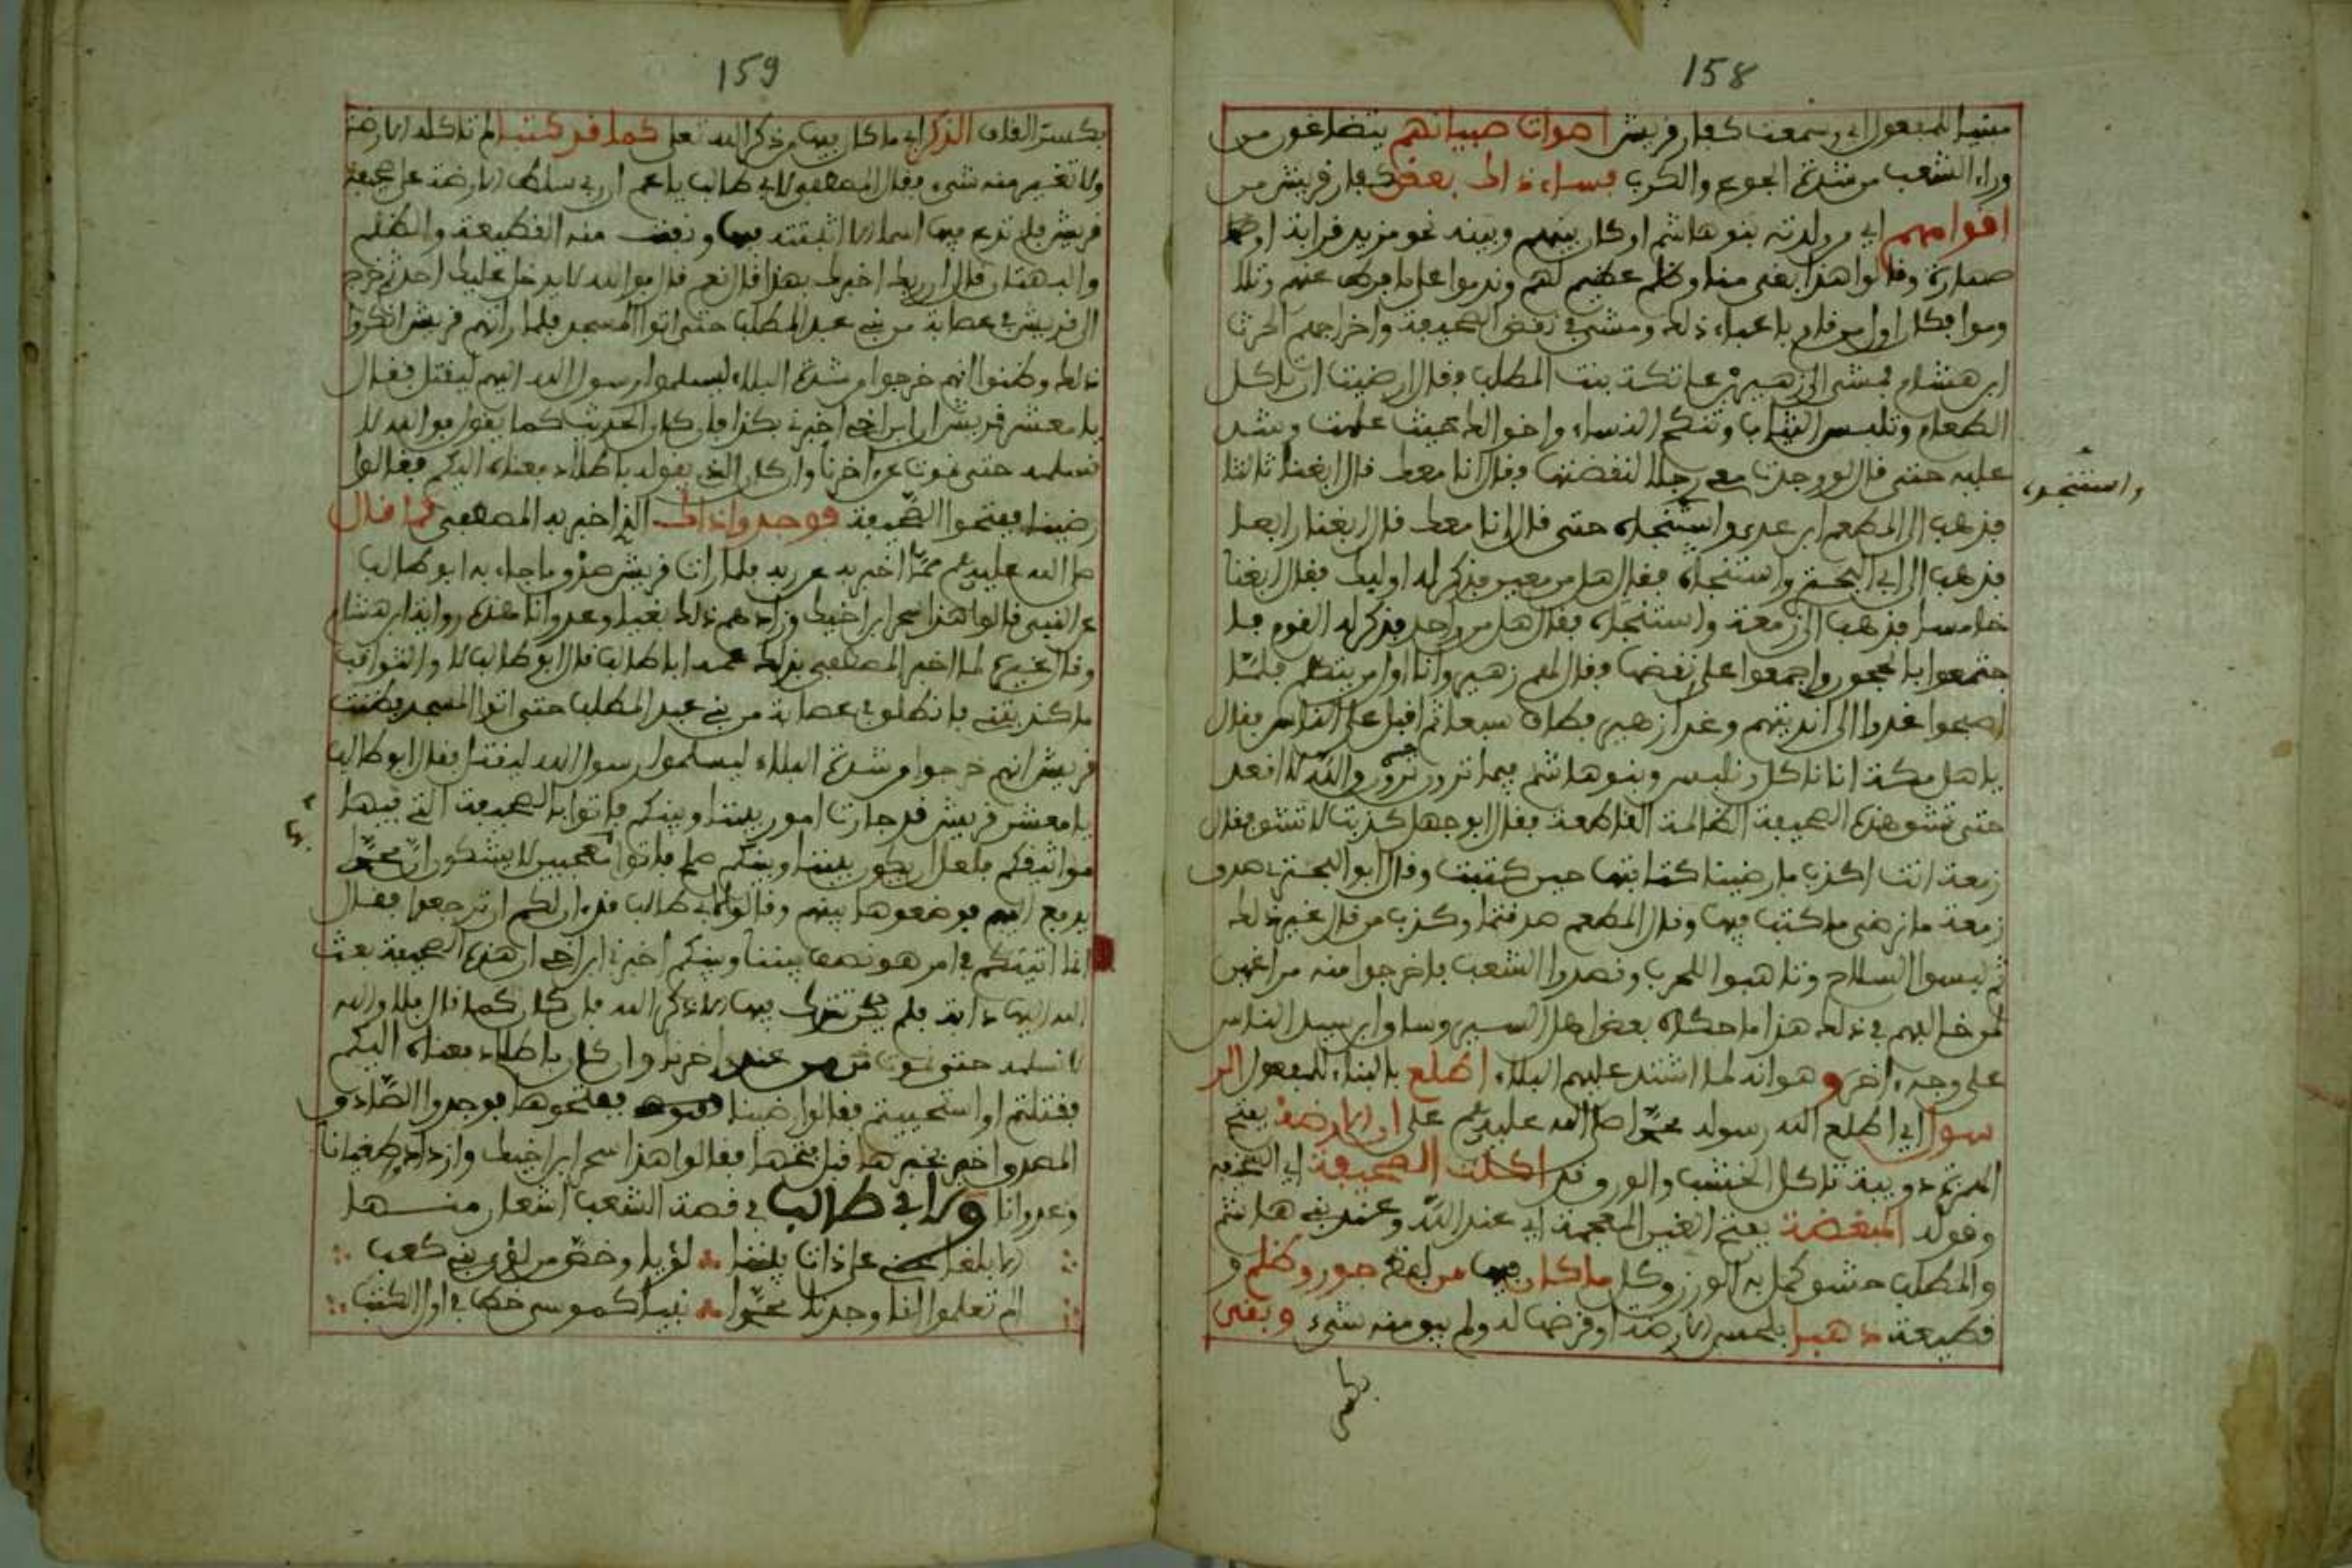 158
مبنيا للمفعول اي سمعت كفار قريش اصوات صبيانهم يتضاغون من
وراء الشعب من شدة الجوع والكرب فساء ذلك بعض كفار قريش من
اقوامهم اي من ولدته بنو هاشم او كان بينهم وبينه نحو مزيد قرابة او
صهارة وقالوا هذا بغي منا وظلم عظيم لهم وندموا على ما
وكان اول من قام باعباء ذلك ومشى في نقض الصحيفة واخراجهم الحرث
ابن هشام فمشى الى زهير بن عاتكة بنت المطلب وقال ارضيت ان تاكل
الطعام وتلبس الثياب وتنكح النساء واخوالك بحيث علمت وشد
عليه حتى قال لو وجدت معي رجلا لنقضتها وقال انا معك قال ابغنا ثالثا
واستنجده
فذهب الى المطعم ابن عدي واستنجده حتى قال انا معك قال ابغنا رابعا
فذهب الى ابي البختري واستنجده فقال هل من معين فذكر له اوليك فقال ابغنا
خامسا فذهب الى زمعة واستنجده فقال هل من واحد فذكر له القوم فا
جتمعوا بالحجون واجمعوا على نقضها وقال لهم زهير وانا اول من يتكلم فلما
اصبحوا غدوا الى انديتهم وغدا زهير فطاف سبعا ثم اقبل على الناس فقال
يا هل مكة انا ناكل ونلبس وبنو هاشم فيما ترون والله لا اقعد
حتى تشق هذه الصحيفة الظالمة القاطعة فقال ابو جهل كذبت لا تشق فقال
زمعة انت اكذب ما رضينا كتابتها حين كتبت وقال ابو البختري صدق
زمعة ما نرضى ما كتب فيها وقال المطعم صدقتما وكذب من قال غير ذلك
ثم لبسوا السلاح وتاهبوا للحرب وقصدوا الشعب فاخرجوا منه مراغمين
لمن خالفهم في ذلك هذا ما حكاه بعض اهل السير وساق ابن سيد الناس
على وجه اخر وهو انه لما اشتد عليهم البلاء اطلع بالبناء للمفعول الر
سول اي اطلع الله رسوله محمدا صلى الله عليه وسلم على ان الارضة بفتح
الهمزة دويبة تاكل الخشب والورق قد اكلت الصحيفة اي
وقوله المبغضة بفتح الغين المعجمة اي عند الله وعند بني هاشم
والمطلب حشو كمل به الوزن وكل ما كان فيها من لفظ جور وظلم و
قطيعة ذهبا بلحس الارضة وقرضها له ولم يبق منه شيء وبقى
159
بكسر القاف الذكر اي ما كان فيها من ذكر الله تعلى كما قد كتبا لم تاكله الارضة
ولا تغير منه شيء فقال المصطفى لابي طالب يا عم ان ربي سلط الارضة على صحيفة
قريش فلم تدع فيها اسما الا اثبتته فيها ونفت منه القطيعة والظلم
والبهتان قال اربك اخبرك بهذا قال نعم قال فوالله لا يدخل عليك احد ثم خرج
الى قريش في عصابة من بني عبد المطلب حتى اتوا المسجد فلما راتهم قريش انكروا
ذلك وظنوا انهم خرجوا من شدة البلاء ليسلموا رسول الله اليهم ليقتل فقال
يا معشر قريش ان ابن اخي اخبرني بكذا فان كان الحديث كما يقول فوالله لا
نسلمه حتى نموت عن اخرنا وان كان الذي يقوله باطلا دفعناه اليكم فقالوا
رضينا ففتحوا الصحيفة فوجدوا ذاك الذي اخبر به المصطفى كما قال
صلى الله عليه وسلم مما اخبر به عن ربه فلما رات قريش صدق ما جاء به ابو طالب
عن النبي قالوا هذا سحر ابن اخيك وزادهم ذلك بغيا وعدوانا هذه رواية ابن هشام
وقال غيره لما اخبر المصطفى بذلك عمه ابا طالب قال ابو طالب لا والثواقب
ما كذبتني فانطلق في عصابة من بني عبد المطلب حتى اتوا المسجد فظنت
قريش انهم خرجوا من شدة البلاء ليسلموا رسول الله ليقتل فقال ابو طالب
يا معشر قريش قد جرت امور بيننا وبينكم فاتوا بالصحيفة التي فيها
بها
مواثيقكم فلعل ان يكون بيننا وبينكم صلح فاتوا معجبين لا يشكون ان محمدا
يدفع اليهم فوضعوها بينهم وقالوا لابي طالب قد ان لكم ان ترجعوا فقال
انما اتيتكم في امر هو نصف بيننا وبينكم اخبرني ابن اخي ان هذه الصحيفة بعث
الله اليها دابة فلم تترك فيها الا ذكر الله فان كان كما قال فلا والله
لا نسلمه حتى نموت من عند اخرنا وان كان باطلا دفعناه اليكم
فقتلتم او استحييتم فقالوا رضينا ففتحوها فوجدوا الصادق
المصدوق اخبر بخبرها قبل فتحها فقالوا هذا سحر ابن اخيك وازدادوا طغيانا
وعدوانا ولابي طالب في قصة الشعب اشعار منها
الا بلغا عني على ذات بيننا لؤيا وخص من لؤي بني كعب
الم تعلموا انا وجدنا محمدا نبيا كموسى خط في اول الكتب